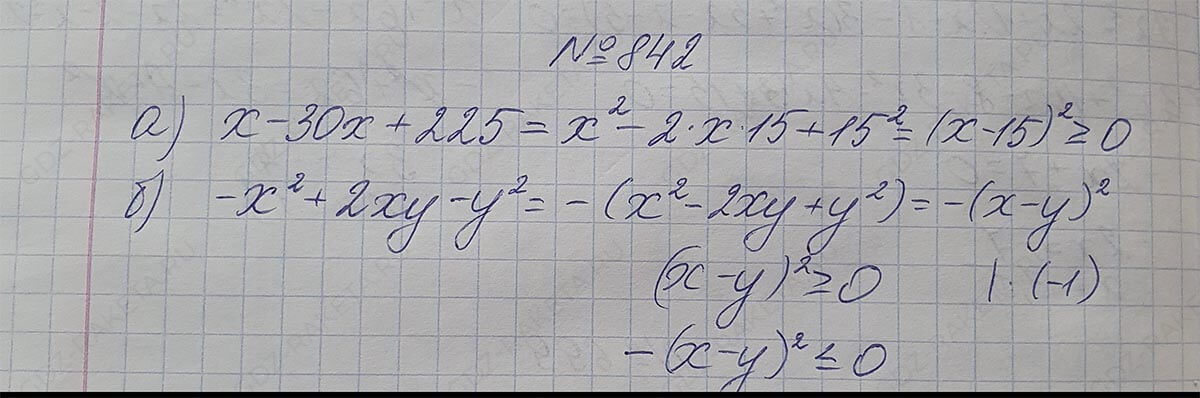 №842
а) x-30x+225=x²-2·x·15+15²=(x-15)²≥0
б) -x²+2xy-y²=-(x²-2xy+y²)=-(x-y)²
(x-y)²≥0 |·(-1)
-(x-y)²≤0